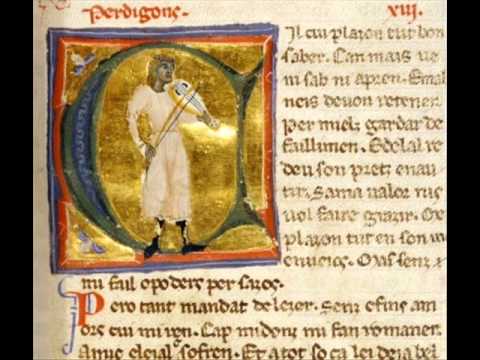 Perdigons. XIII.
Il cui plazon tut bon
saber. Can mais ve
ni sab ni apren. E mal
neis devon retener
Per miels gardar de
faillimen. E de lal re
deu son pretz enau
tur. Sama valor nis
vol faire grazir. Qe
plazon tut en son
mi faill o poders per
Pero tant mandat de lezer. Sent e fins am
ors cui mi ren. Cap midons mi fan romaner.
sofren. Et a tot so ca lei deia bel